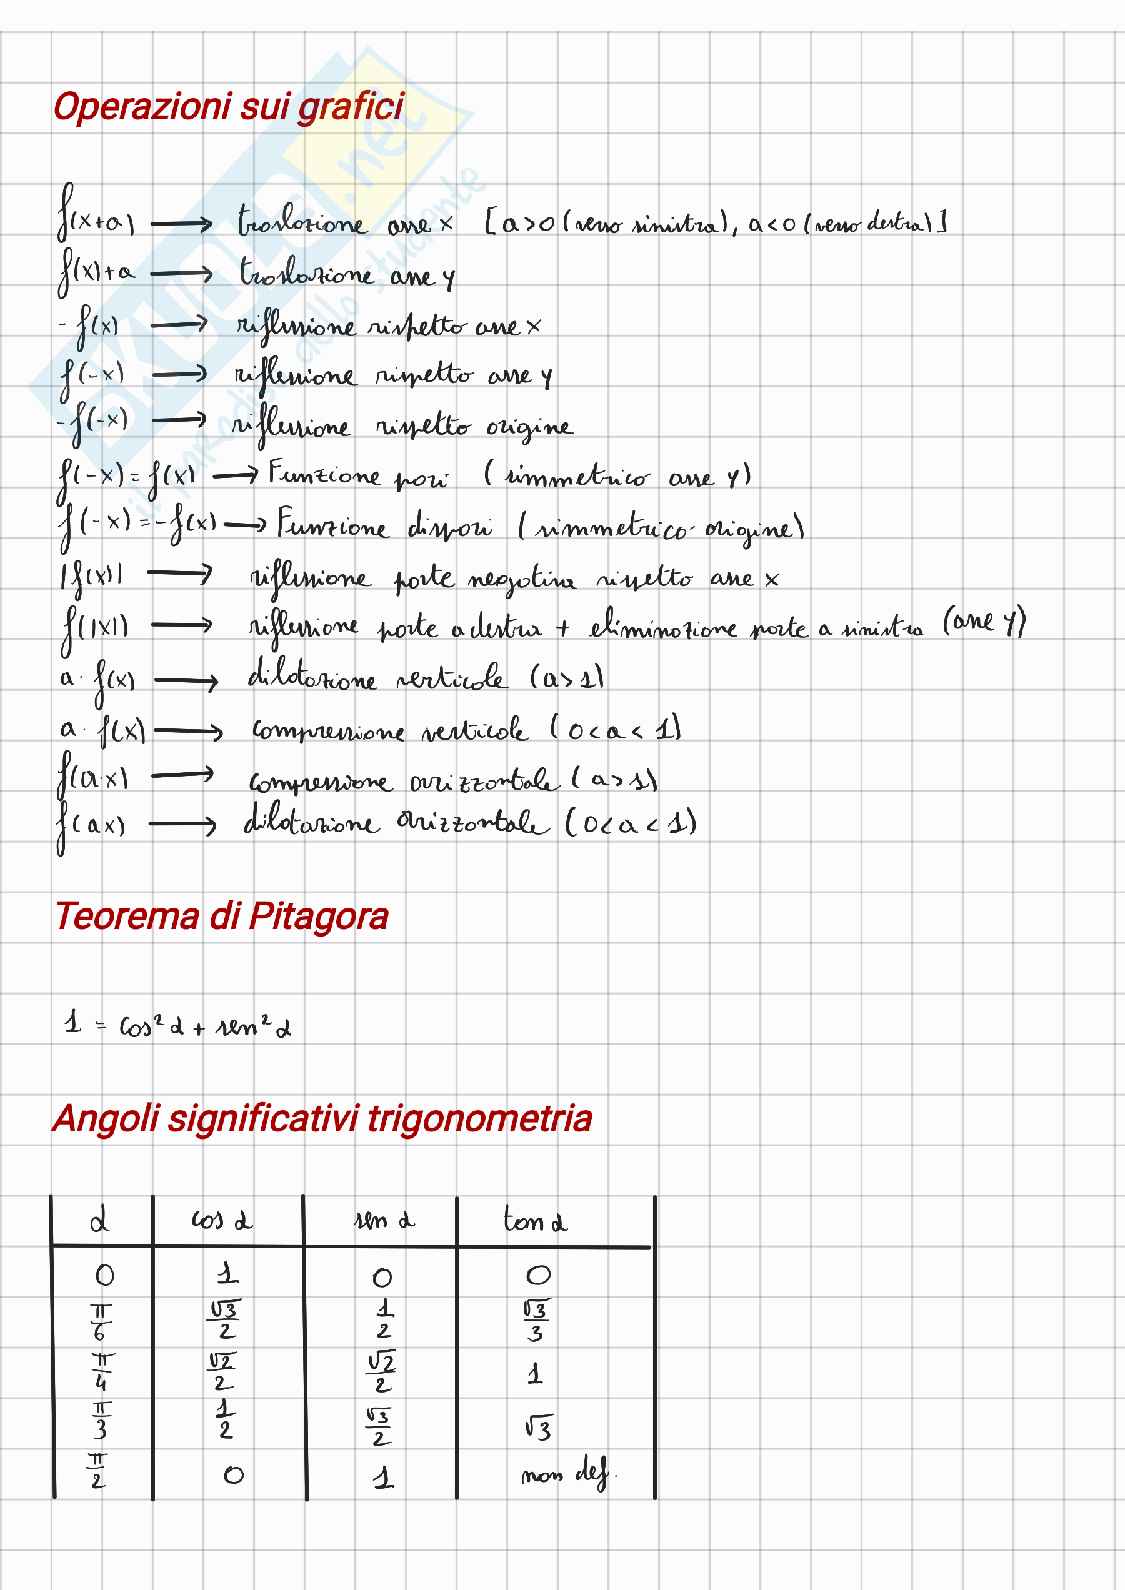 Operazioni sui grafici
f(x+a) → traslazione asse x [a>0 (verso sinistra), a<0 (verso destra)]
f(x)+a → traslazione asse y
-f(x) → riflessione rispetto asse x
f(-x) → riflessione rispetto asse y
-f(-x) → riflessione rispetto origine
f(-x) = f(x) → Funzione pari (simmetrico asse y)
f(-x) = -f(x) → Funzione dispari (simmetrico origine)
|f(x)| → riflessione parte negativa rispetto asse x
f(|x|) → riflessione parte a destra + eliminazione parte a sinistra (asse y)
a · f(x) → dilatazione verticale (a>1)
a · f(x) → compressione verticale (0<a<1)
f(a·x) → compressione orizzontale (a>1)
f(ax) → dilatazione orizzontale (0<a<1)
Teorema di Pitagora
1 = cos²α + sen²α
Angoli significativi trigonometria
α cos α sen α tan α
0 1 0 0
π/6 √3/2 1/2 √3/3
π/4 √2/2 √2/2 1
π/3 1/2 √3/2 √3
π/2 0 1 non def.
SKUOLA.net
il paradiso dello studente